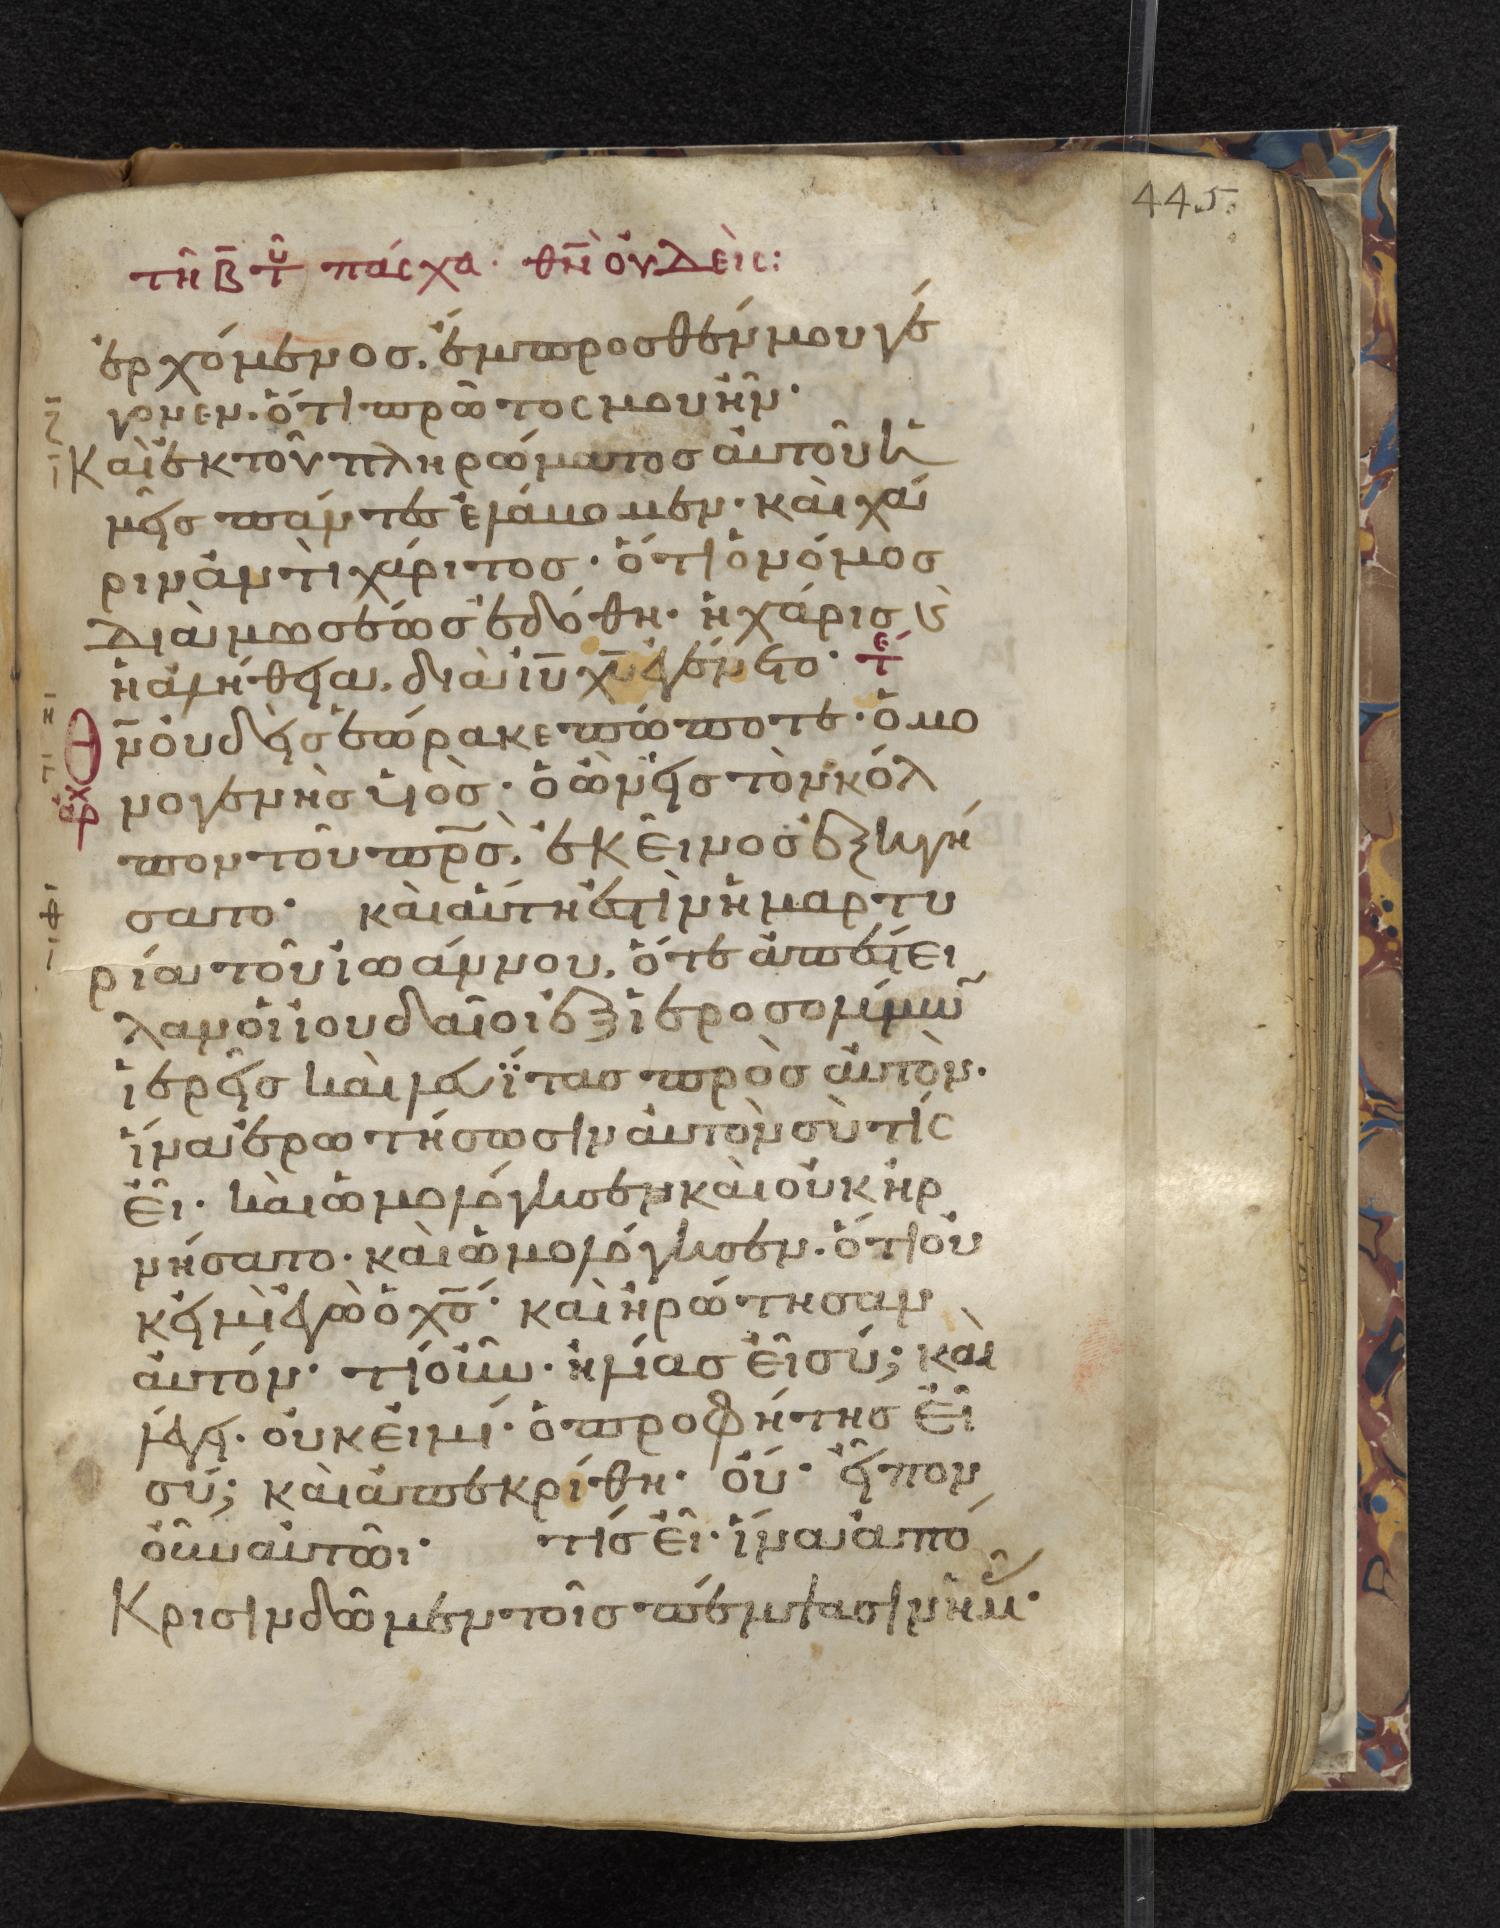 445.
τῆ β̄ τ̑ου πάσχα· θν̄ ὀυδεὶς:
ἐρχόμενος, ἔμπροσθέν μου γέ
γονεν· ὅτι πρῶτος μου ἦν·
ζ̄ ῑ
Καὶ ἐκ τοῦ πληρώματος αὐτοῦ ἡ
μεῖς πάντες ἐλάβομεν· καὶ χά
ριν ἀντὶ χάριτος· ὅτι ὁ νόμος
διὰ μωσέως ἐδόθη· ἡ χάρις ϗ
ἡ ἀλήθεια, διὰ ῑῡ χ̄ῡ ἐγένετο· τέ
η̄ ῑ
ἀρχ
Θν̄ οὐδεὶς ἑώρακε πώποτε· ὁ μο
νογενὴς υἱὸς· ὁ ὢν εἰς τὸν κόλ
πον τοῦ πρ̄ς, ἐκεῖνος ἐξηγή
σατο· καὶ αὕτη ἐστὶν ἡ μαρτυ
ρία τοῦ ἰωάννου, ὅτε ἀπέστει
λαν οἱ ἰουδαῖοι ἐξ ἱεροσολύμων
ἱερεῖς καὶ λευΐτας πρὸς αὐτὸν·
ἵνα ἐρωτήσωσιν αὐτὸν σὺ τίς
εἶ· καὶ ὡμολόγησεν καὶ οὐκ ἠρ
νήσατο· καὶ ὡμολόγησεν· ὅτι οὐ
κ εἰμὶ ἐγὼ ὁ χ̄ς· καὶ ἠρώτησαν
αὐτόν· τί οὖν· ἠλίας εἶ σύ; καὶ
λέγει· οὐκ εἰμί· ὁ προφήτης εἶ
σύ; καὶ ἀπεκρίθη· οὔ· εἶπον
οὖν αὐτῶι· τίς εἶ· ἵνα ἀπό
κρισιν δῶμεν τοῖς πέμψασιν ἡμᾶ·